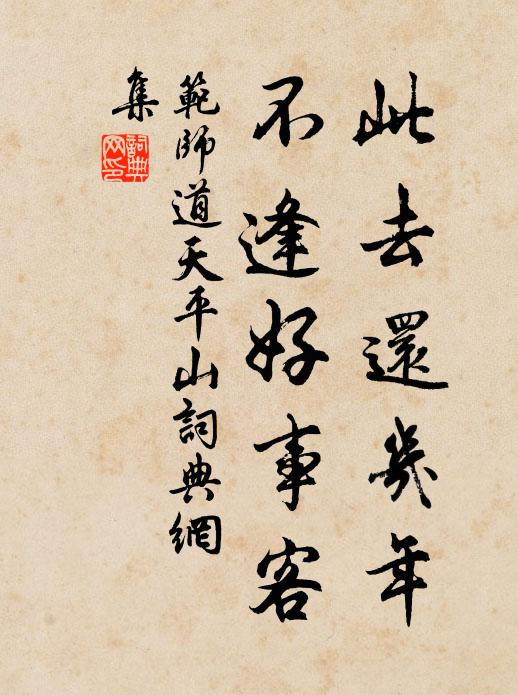 此去還幾年
不逢好事客
範師道天平山詞典網
集
詞典網印